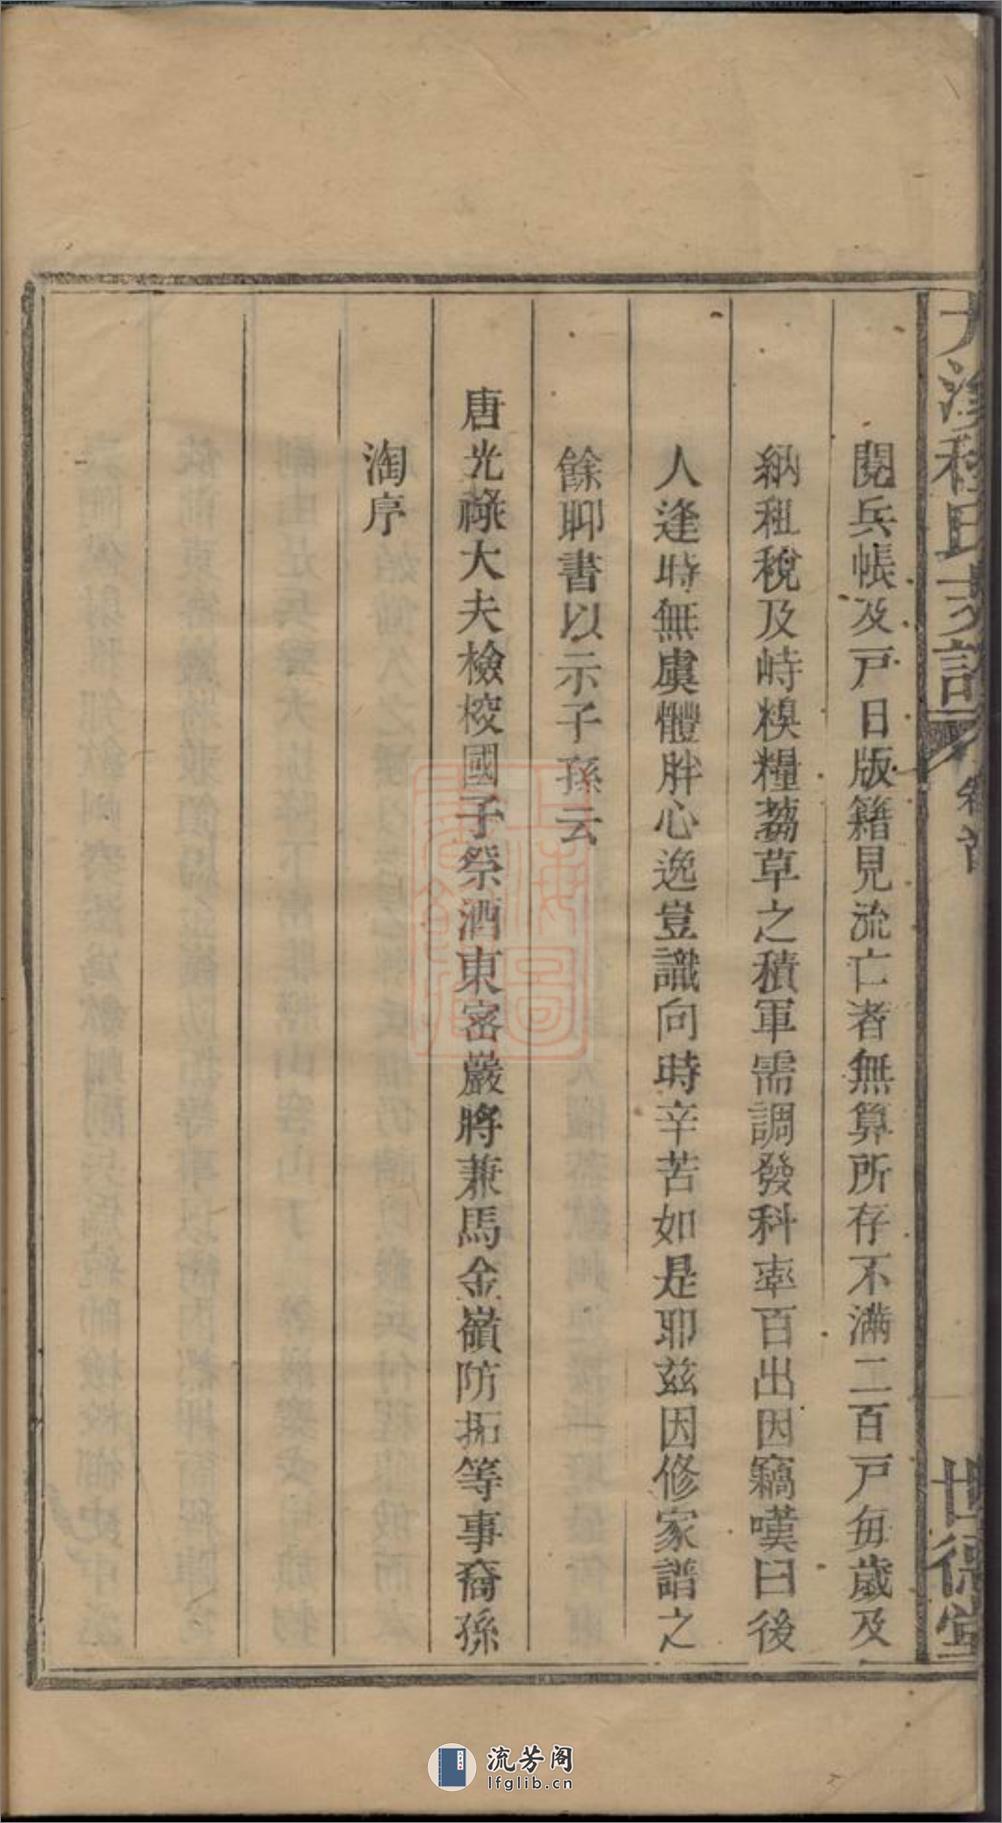 閱兵帳及戸日版籍見流亡者無算所存不滿二百戸毎歲及
納租稅及峙糗糧蒭草之積軍需調發科率百出因竊嘆曰後
人逢時無虞體胖心逸豈識向時辛苦如是耶兹因修家譜之
餘聊書以示子孫云
唐光祿大夫檢校國子祭酒東密巖將兼馬金嶺防拓等事裔孫
淘序
溪程氏支譜 卷首 世德堂
流芳阁
lfglib.cn